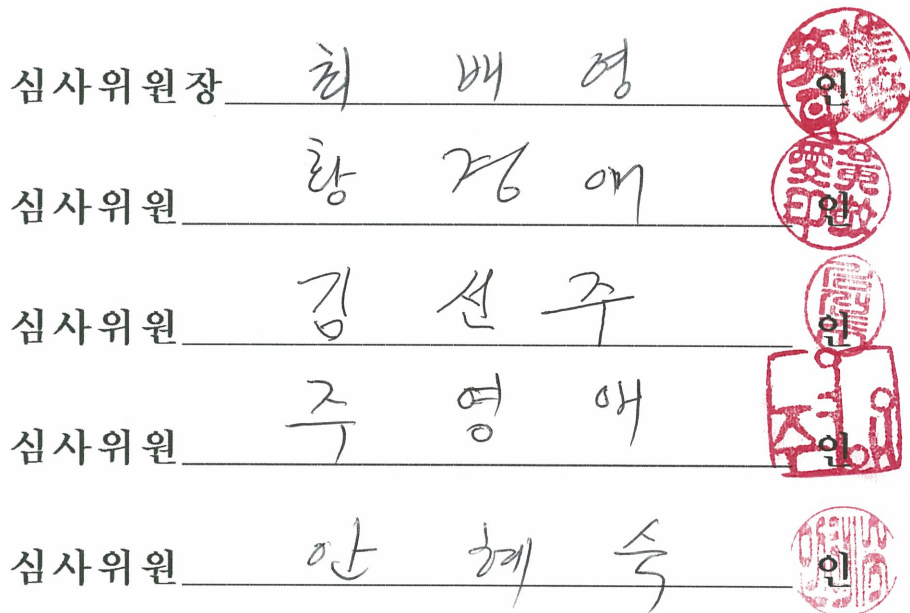 심사위원장 최 배 영 인
심사위원 황 경 애 인
심사위원 김 선 주 인
심사위원 주 영 애 인
심사위원 안 혜 숙 인